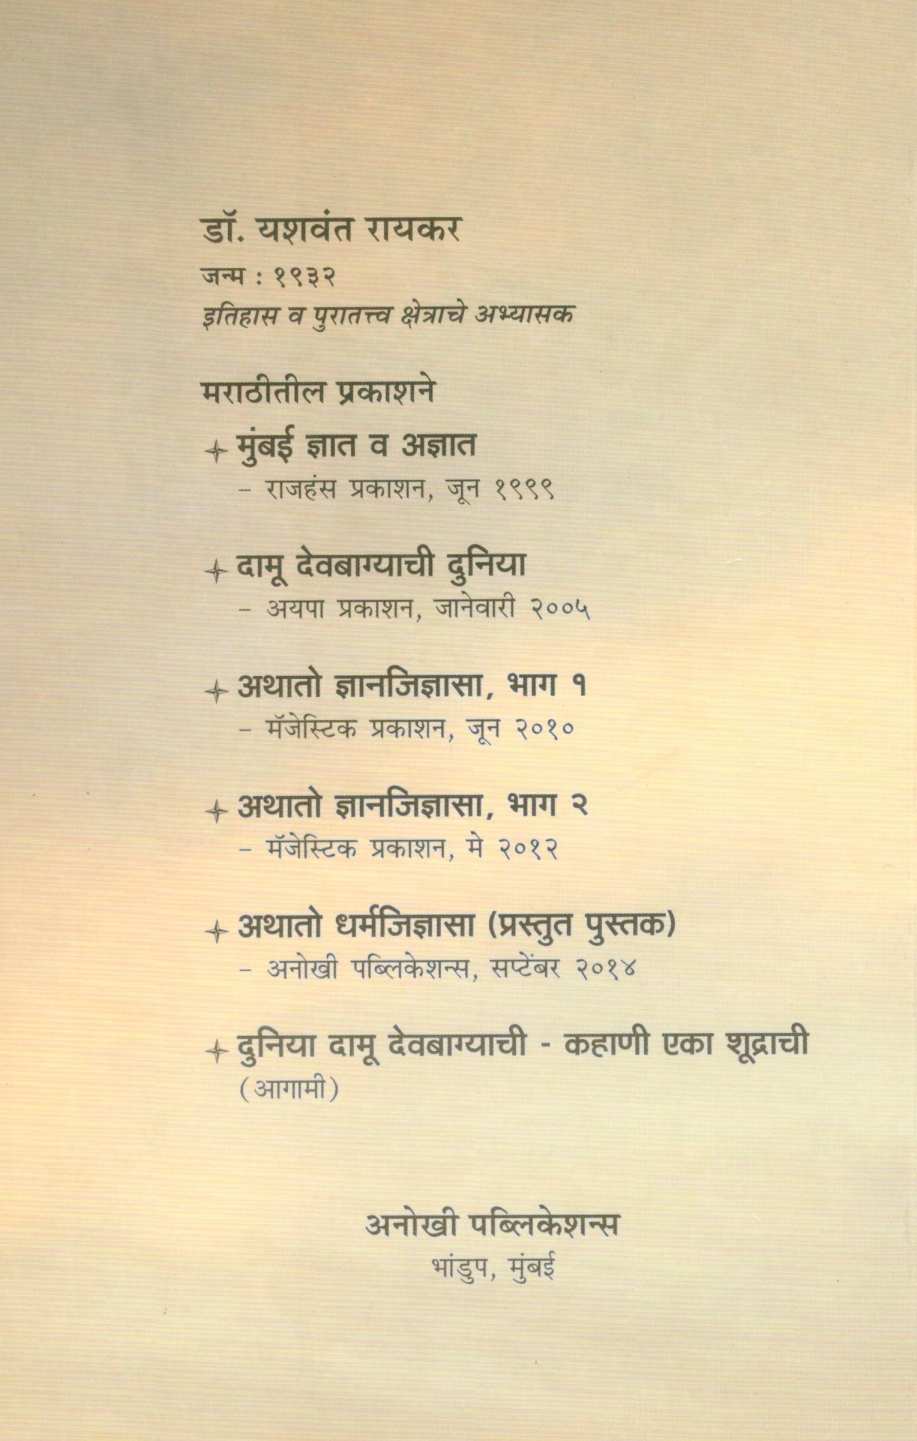 डॉ. यशवंत रायकर
जन्म : १९३२
इतिहास व पुरातत्त्व क्षेत्राचे अभ्यासक
मराठीतील प्रकाशने
मुंबई ज्ञात व अज्ञात
– राजहंस प्रकाशन, जून १९९९
दामू देवबाग्याची दुनिया
– अयपा प्रकाशन, जानेवारी २००५
अथातो ज्ञानजिज्ञासा, भाग १
– मॅजेस्टिक प्रकाशन, जून २०१०
अथातो ज्ञानजिज्ञासा, भाग २
– मॅजेस्टिक प्रकाशन, मे २०१२
अथातो धर्मजिज्ञासा (प्रस्तुत पुस्तक)
– अनोखी पब्लिकेशन्स, सप्टेंबर २०१४
दुनिया दामू देवबाग्याची - कहाणी एका शूद्राची
(आगामी)
अनोखी पब्लिकेशन्स
भांडुप, मुंबई